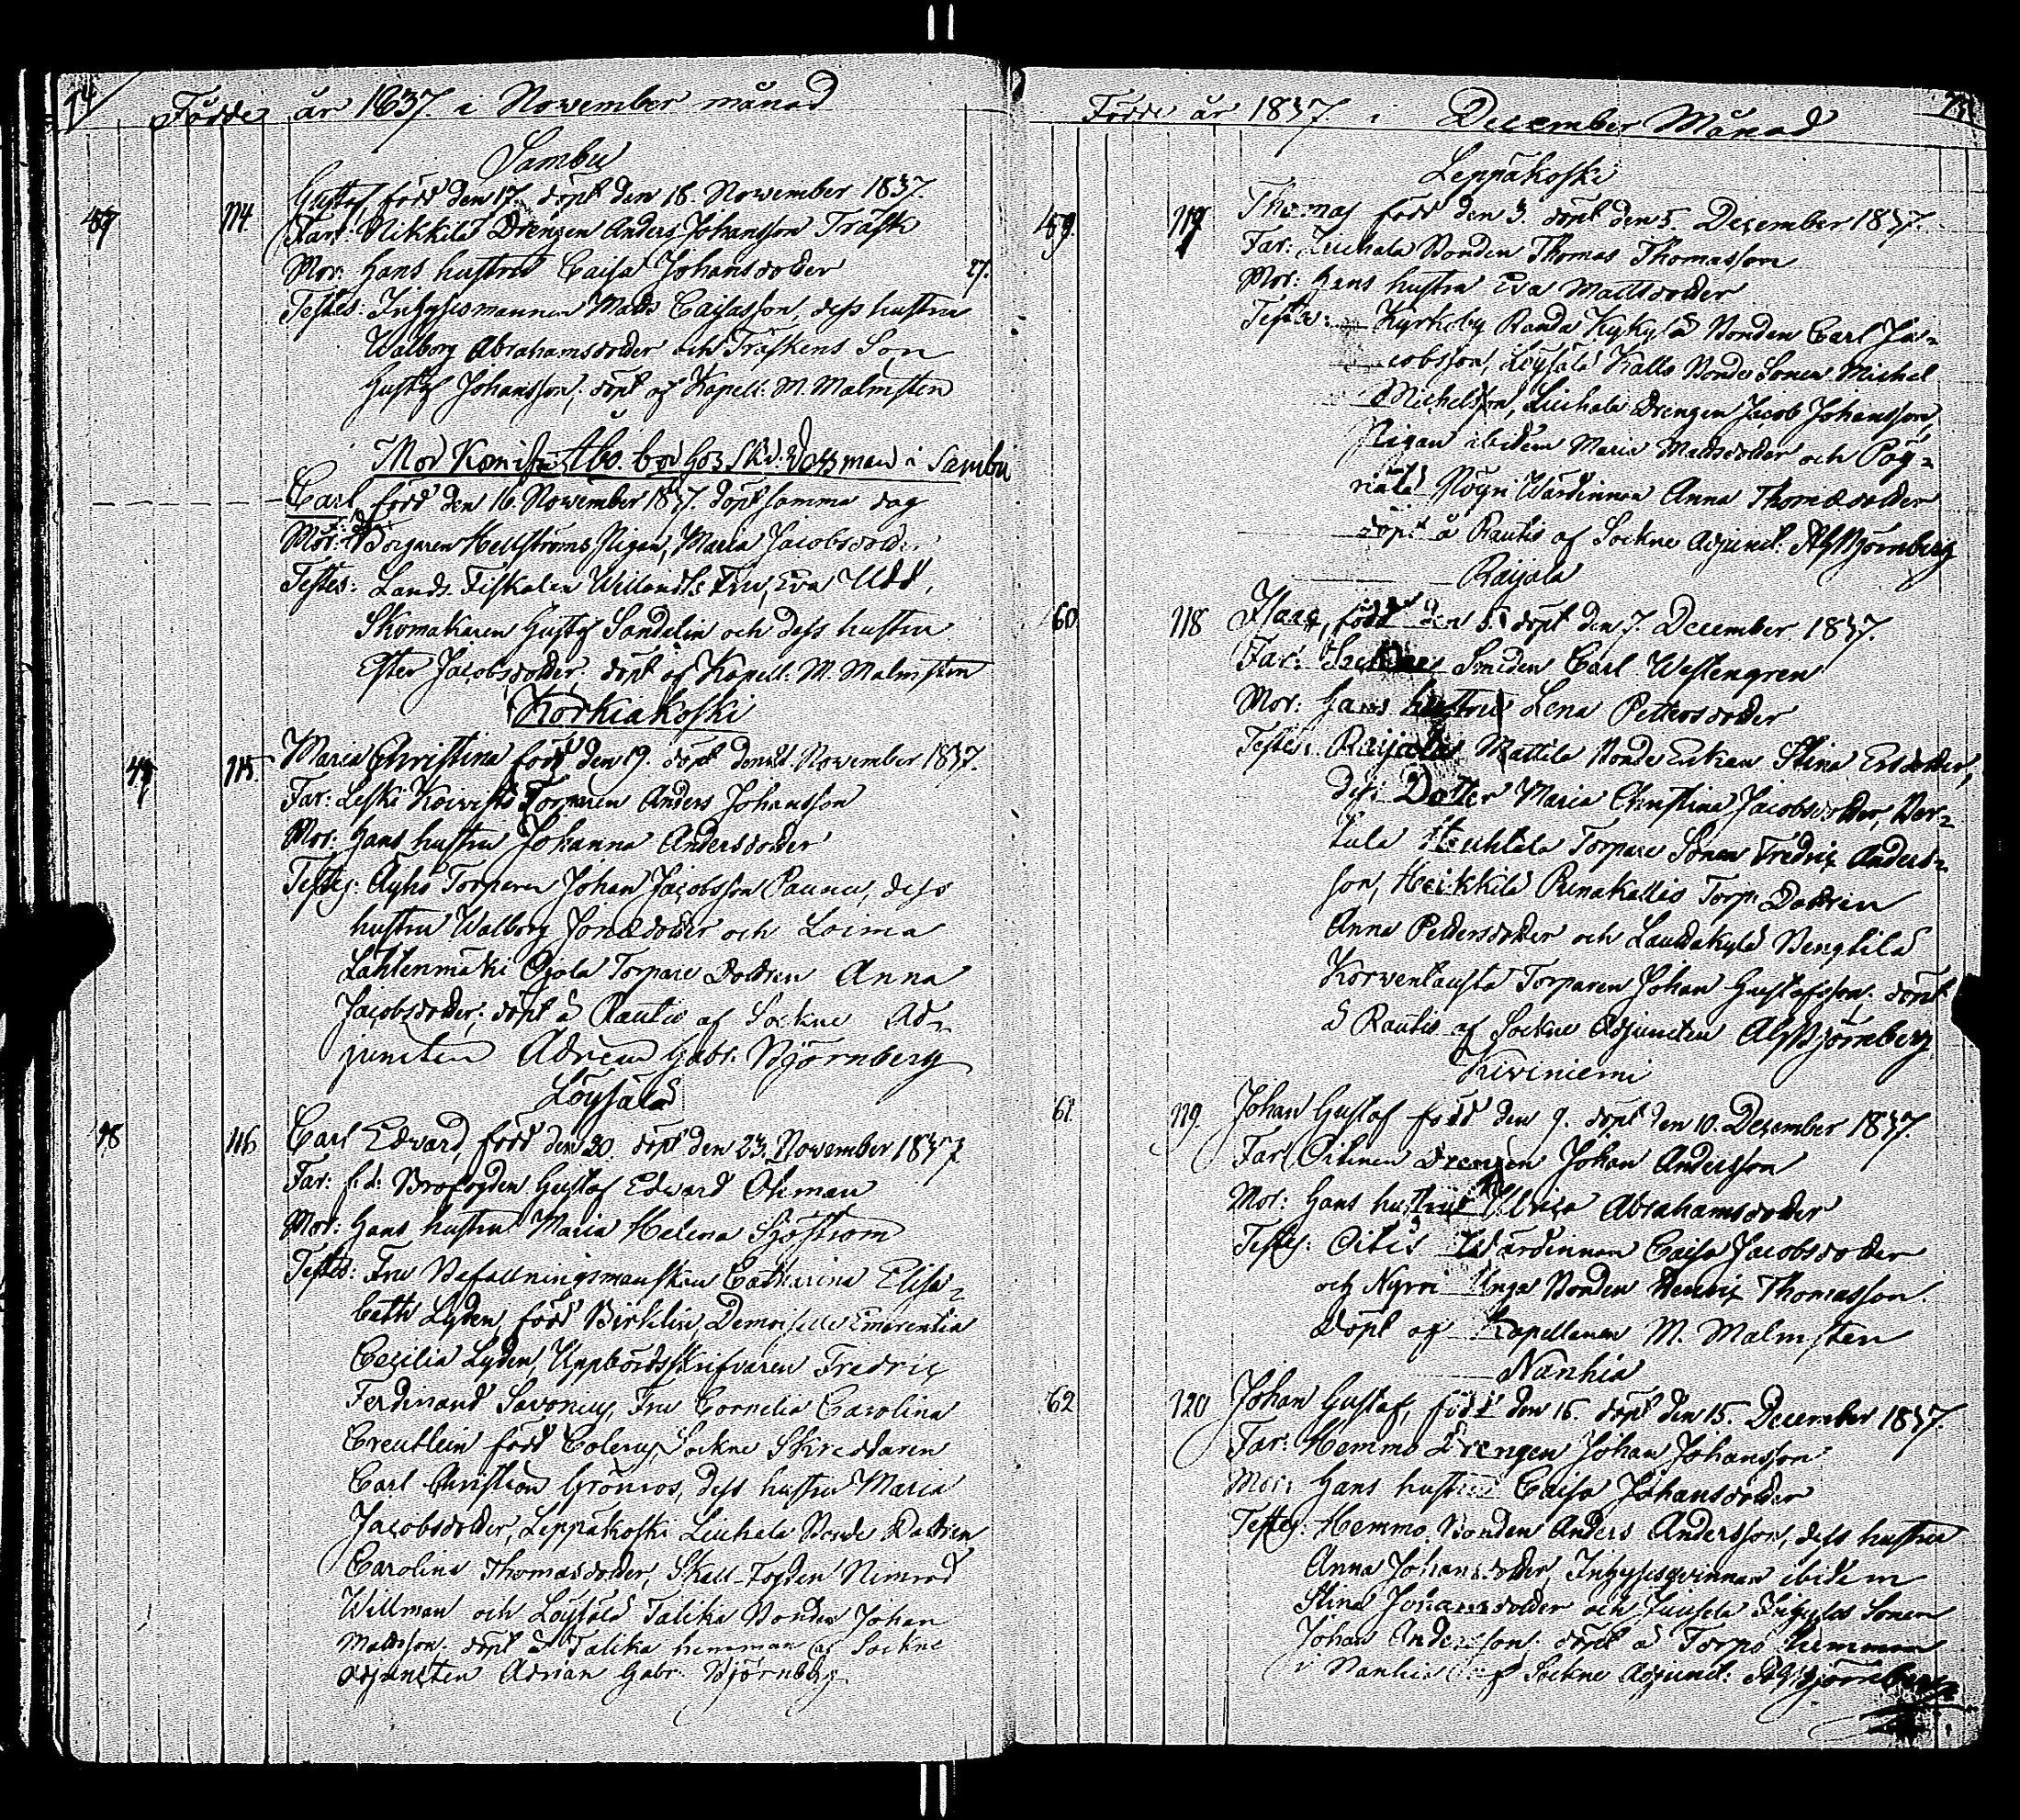 74
Födde år 1837. i November månad
Sambu
57 114. Gustaf född den 17. döpt den 18. November 1837.
Far: Nikkilä Drengen Anders Johansson Träsk
Mor: Hans hustru Caisa Johansdotter 27.
Testes: Inhysesmannen Matts Caisasson, dess hustru
Walborg Abrahamsdotter och Träskens Son
Gustaf Johansson, döpt af Kapell. M. Malmsten
Mor Åbo. hos i Sambu
Carl, född den 16. November 1837. döpt samma dag
Mor: Borgaren Hellströms Pigan, Maria Jacobsdott:
Testes: Lands Fiskalen Willandts Fru, Eva Udd,
Skomakaren Gustaf Sandelin och dess hustru
Ester Jacobsdotter, döpt af Kapell. M. Malmsten
Korkiakoski
47 115. Maria Christina född den 19. döpt den November 1837.
Far: Leski Koivisto Torparen Anders Johansson
Mor: Hans hustru Johanna Andersdotter
Testes: Äyhö Torparen Johan Jacobsson Paunu, dess
hustru Walborg Jonædotter och Loima
Lähtenmäki Ojola Torpare Dottren Anna
Jacobsdotter; döpt å Rautio af Sockne Ad-
juncten Adrian Gabr. Björnberg
Löysälä
48 116 Carl Edvard, född den 20. döpt den 23. November 1837
Far: f.d. Brofogden Gustaf Edvard Öhman
Mor: Hans hustru Maria Helena Sjöström
Testes: Fru Befallningsmanskan Catharina Elisa-
beth Lyden, född Birkelin, Demoiselle Emerentia
Cecilia Lyden, Uppbördsskrifvaren Fredric
Ferdinand Savonius, Fru Cornelia Carolina
Creutlein född Colerus, Sockne Skreddaren
Carl Christian Grönros, dess hustru Maria
Jacobsdotter, Leppäkoski Liuhala Bonde Dottren
Carolina Thomasdotter, Skall-Fogden Nimrod
Willman och Löysälä Talika Bonden Johan
Mattsson. döpt å Talika hemman af Sockne
adjuncten Adrian Gabr. Björnberg
75
Födde år 1837. i December Månad
Leppäkoski
59. 117 Thomas född den 3. döpt den 5. December 1837.
Far: Liuhala Bonden Thomas Thomasson
Mor: Hans hustru Eva Mattsdotter
Testes: Kyrkoby Randa Kykylä Bonden Carl Ja-
cobsson, Löysälä Kallo Bonde Sonen Michel
Michelsson, Liuhala Drengen Jacob Johansson,
Pigan ibidem Maria Mattsdotter och Pög-
riälä Nögri Wärdinnan Anna Thomædotter
döpt å Rautio af Sockne Adjunct. AGBjörnberg
Raijala
60 118 Isaac, född den 5. döpt den 7. December 1837.
Far: Smeden Carl Westengren
Mor: Hans hustru Lena Pettersdotter
Testes: Raijala Mattila Bonde Enkan Stina Ersdotter,
dess Dotter Maria Christina Jacobsdotter, Ver-
tula Torpare Sonen Fredric Anders-
son, Heikkilä Punakallio Torp. Dottren
Anna Pettersdotter och Laudakylä Bengtilä
Korventausta Torparen Johan Gustafsson. döpt
å Rautio af Sockne Adjuncten AGBjörnberg
Kiviniemi
61. 119. Johan Gustaf född den 9. döpt den 10. December 1837.
Far: Oitinen Drengen Johan Andersson
Mor: Hans hustru Ulrica Abrahamsdotter
Testes: Oitis Wärdinnan Caisa Jacobsdotter
och Nyrri Unga Bonden Henric Thomasson.
Döpt af Kapellanen M. Malmsten
Nanhia
62 120 Johan Gustaf, född den 15. döpt den 15. December 1837.
Far: Hemmo Drengen Johan Johansson
Mor: Hans hustru Caisa Johansdotter
Testes: Hemmo Bonden Anders Andersson, dess hustru
Anna Johansdotter, Inhysesqvinnan ibidem
Stina Johansdotter och Inhyses Sonen
Johan Andersson. döpt å Torpo hemman
i Nanhia af Sockne Adjunct. AGBjörnberg